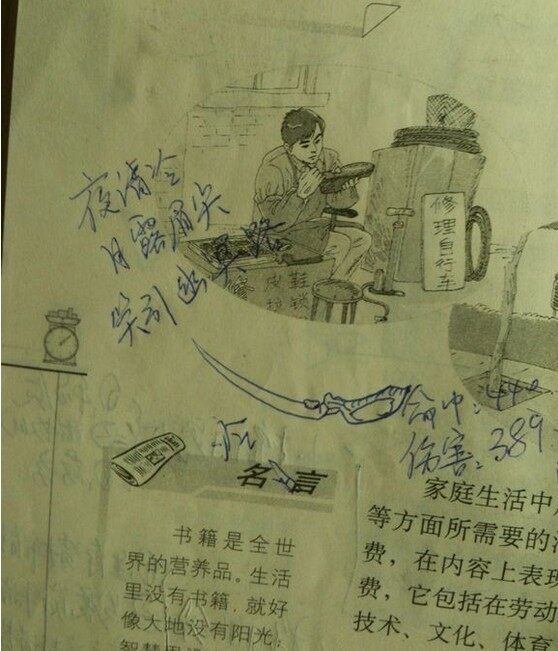 夜清冷
月露眉尖
笑引幽冥路
修理自行车
修
皮鞋
拉锁
命中:440
伤害:389
名言
书籍是全世
界的营养品。生活
里没有书籍,就好
像大地没有阳光;
家庭生活中
等方面所需要的
费,在内容上表现
费,它包括在劳动
技术、文化、体育